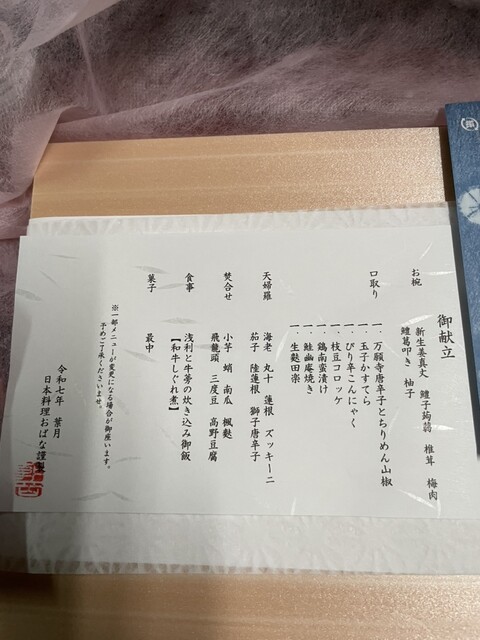 御献立
お椀
新生姜真丈 鱧子蒟蒻 椎茸 梅肉
鱧葛叩き 柚子
口取り
一、万願寺唐辛子とちりめん山椒
一、玉子かすてら
一、ぴり辛こんにゃく
一、枝豆コロッケ
一、鶏南蛮漬け
一、鮭幽庵焼き
一、生麩田楽
天婦羅
海老 丸十 蓮根 ズッキーニ
茄子 陸蓮根 獅子唐辛子
焚合せ
小芋 蛸 南瓜 楓麩
飛龍頭 三度豆 高野豆腐
食事
浅利と牛蒡の炊き込み御飯
【和牛しぐれ煮】
菓子
最中
※一部メニューが変更になる場合が御座います。
予めご了承くださいませ。
令和七年 葉月
日本料理おばな謹製